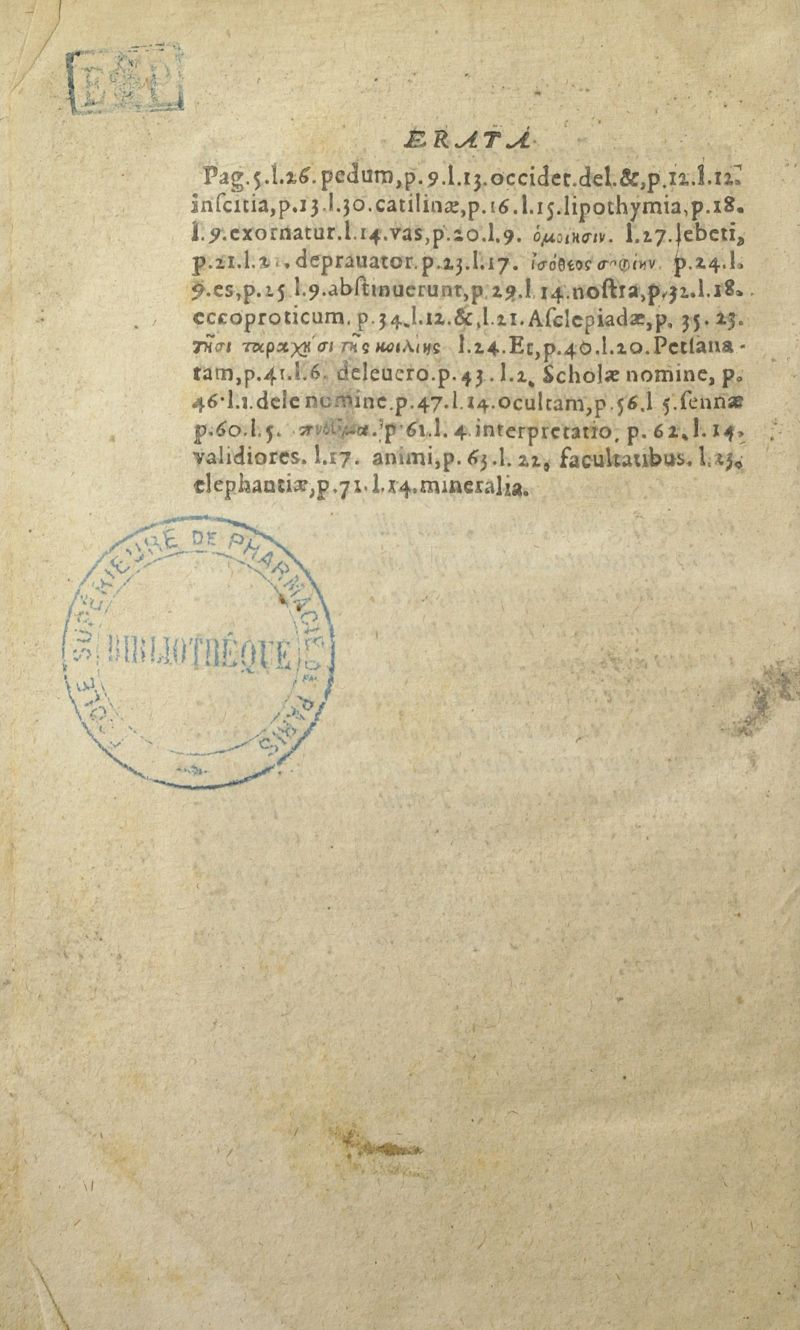 ERATA
Pag.5.l.26.pedum,p.9.l.13.occidet.del.&,p.12.l.12.
inſcitia,p.13.l.30.catilinæ,p.16.l.15.lipothymia,p.18.
l.9.exornatur.l.14.vas,p.20.l.9. l.27.lebeti,
p.21.l. deprauator.p.23.l.17. ἰσόθεος p.24.l.
9.es,p.25 l.9.abſtinuerunt,p.29.l 14.noſtra,p.32.l.18.
eccoproticum. p.34.l.12.&,l.21.Aſclepiadæ,p. 35. 23.
τῆσι ταραχῇσι τῆς κοιλίης l.24.Et,p.40.l.20.Petlana-
tam,p.41.l.6. deleuero.p.43.l.2. Scholæ nomine, p.
46.l.1.dele nomine.p.47.l.14.ocultam,p.56.l 5.ſennæ
p.60.l.5. p 61.l. 4.interpretatio, p. 62.l. 14.
validiores. l.17. animi,p. 63.l. 22, facultatibus. l.23.
elephantiæ,p.71.l.14.mineralia.
ECOLE SUPÉRIEURE DE PHARMACIE DE PARIS
BIBLIOTHÈQUE